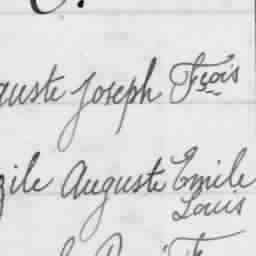 uste Joseph Fcois
ile Auguste Emile
Louis